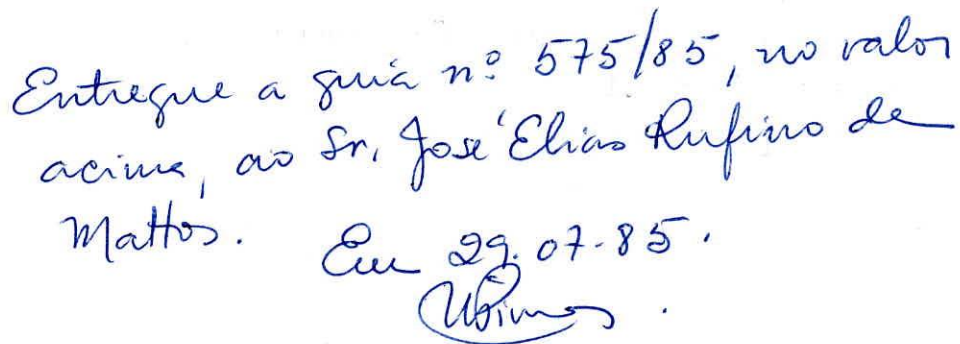 Entregue a guia nº 575/85, no valor
acima, ao Sr. José Elias Rufino de
Mattos.
Em 29.07.85.